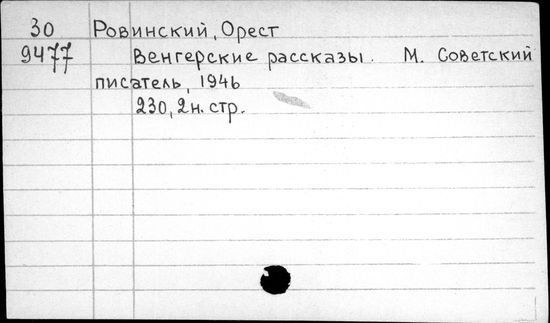 30 Ровинский, Орест
9477 Венгерские рассказы. М. Советский
писатель, 1946
230, 2н. стр.